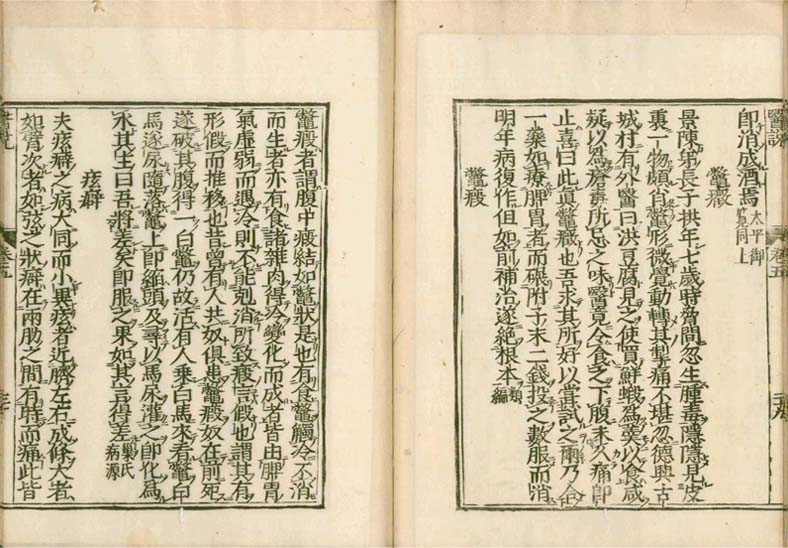 即消成酒焉太平御覽同上
鼈瘕
景陳弟長子拱年七歲時脅間忽生腫毒隱隱見皮
裏一物頗肖鼈形微覺動轉其掣痛不堪忽德興古
城村有外醫曰洪豆腐見之使買鮮蝦爲羹以食咸
疑以爲瘡毒所忌之味醫竟令食之下腹未久痛即
止喜曰此真鼈癥也吾求其所好以嘗試之爾乃合
一藥如療脾胃者而碾附子末二錢投之數服而消
明年病復作但如前補治遂絕根本類編
鼈瘕
鼈瘕者謂腹中瘕結如鼈狀是也有食鼈觸冷不消
而生者亦有食諸雜肉得冷變化而成者皆由脾胃
氣虛弱而遇冷則不能剋消所致瘕言假也謂其有
形假而推移也昔曾有人共奴俱患鼈瘕奴在前死
遂破其腹得一白鼈仍故活有人乘白馬來看鼈
馬遂尿隨落鼈上即縮頭及尋以馬尿灌之即化爲
水其主曰吾將差矣即服之果如其言得差巢氏病源
痃癖
夫痃癖之病大同而小異痃者近臍左右成條大者
如臂次者如弦之狀癖在兩肋之間有時而痛此皆
醫說
卷五
卷五